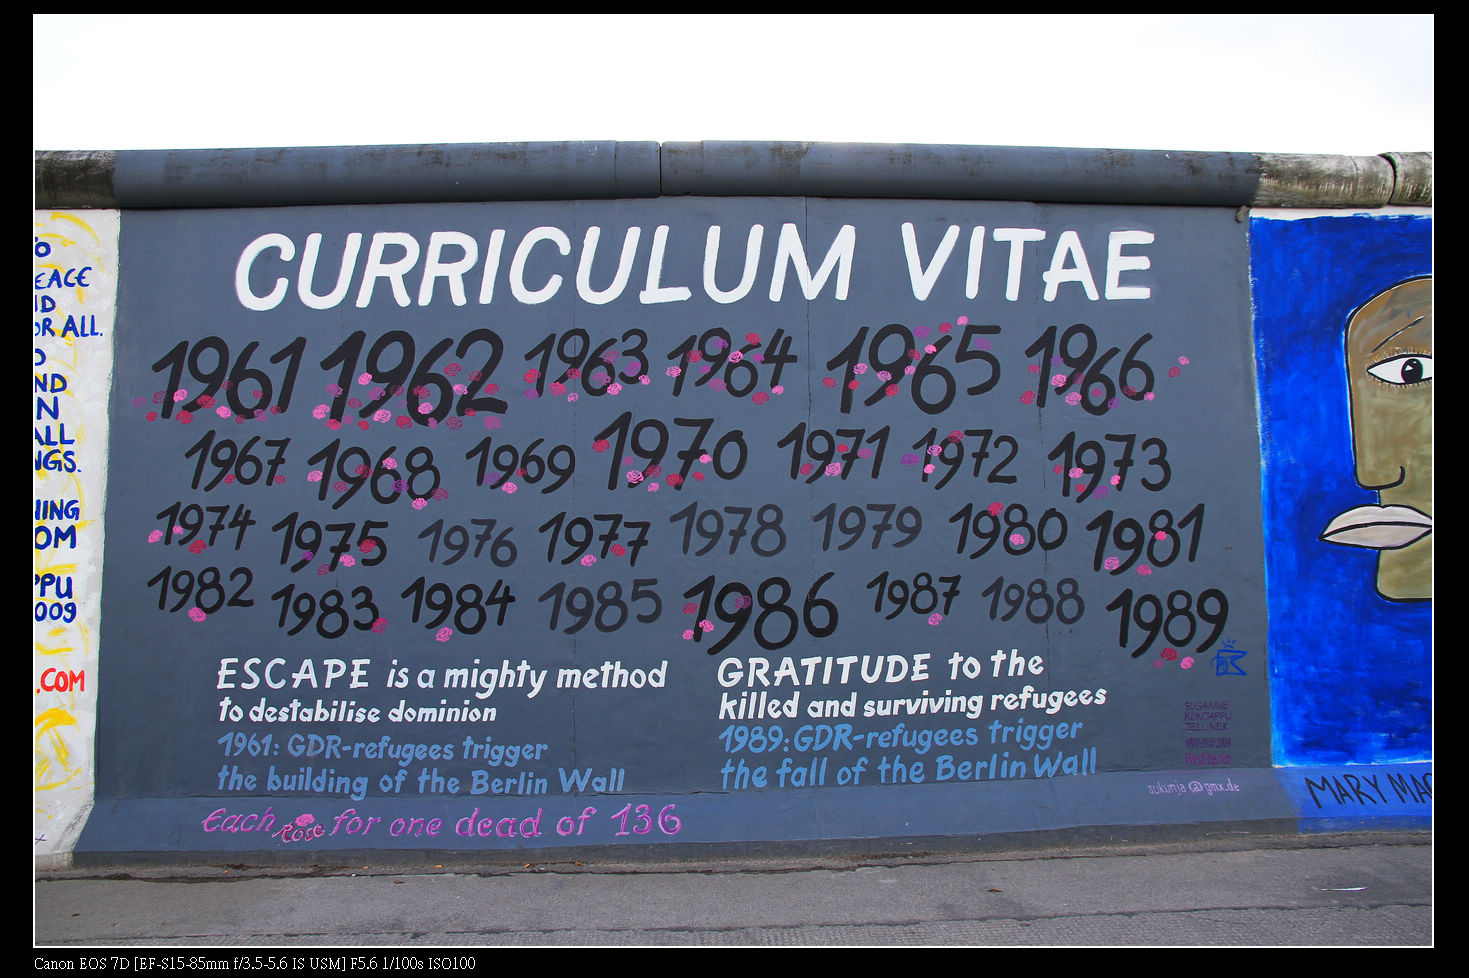 TO
EACE
ND
OR ALL.
O
ND
N
ALL
NGS.
NING
OM
PPU
009
.COM
CURRICULUM VITAE
1961 1962 1963 1964 1965 1966
1967 1968 1969 1970 1971 1972 1973
1974 1975 1976 1977 1978 1979 1980 1981
1982 1983 1984 1985 1986 1987 1988 1989
ESCAPE is a mighty method
to destabilise dominion
1961: GDR-refugees trigger
the building of the Berlin Wall
GRATITUDE to the
killed and surviving refugees
1989: GDR-refugees trigger
the fall of the Berlin Wall
Each Rose for one dead of 136
SUSANNE
KUNJAPPU
JELLINEK
West-Berlin
sukunja@gmx.de
MARY MAC
Canon EOS 7D [EF-S15-85mm f/3.5-5.6 IS USM] F5.6 1/100s ISO100